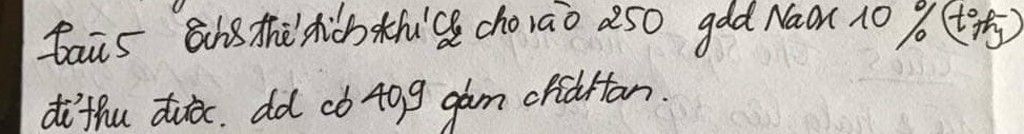 Câu 5 tính thể tích khí Cl2 cho vào 250 gdd NaOH 10 % (tº thg)
để thu được. dd có 40,9 gam chất tan.